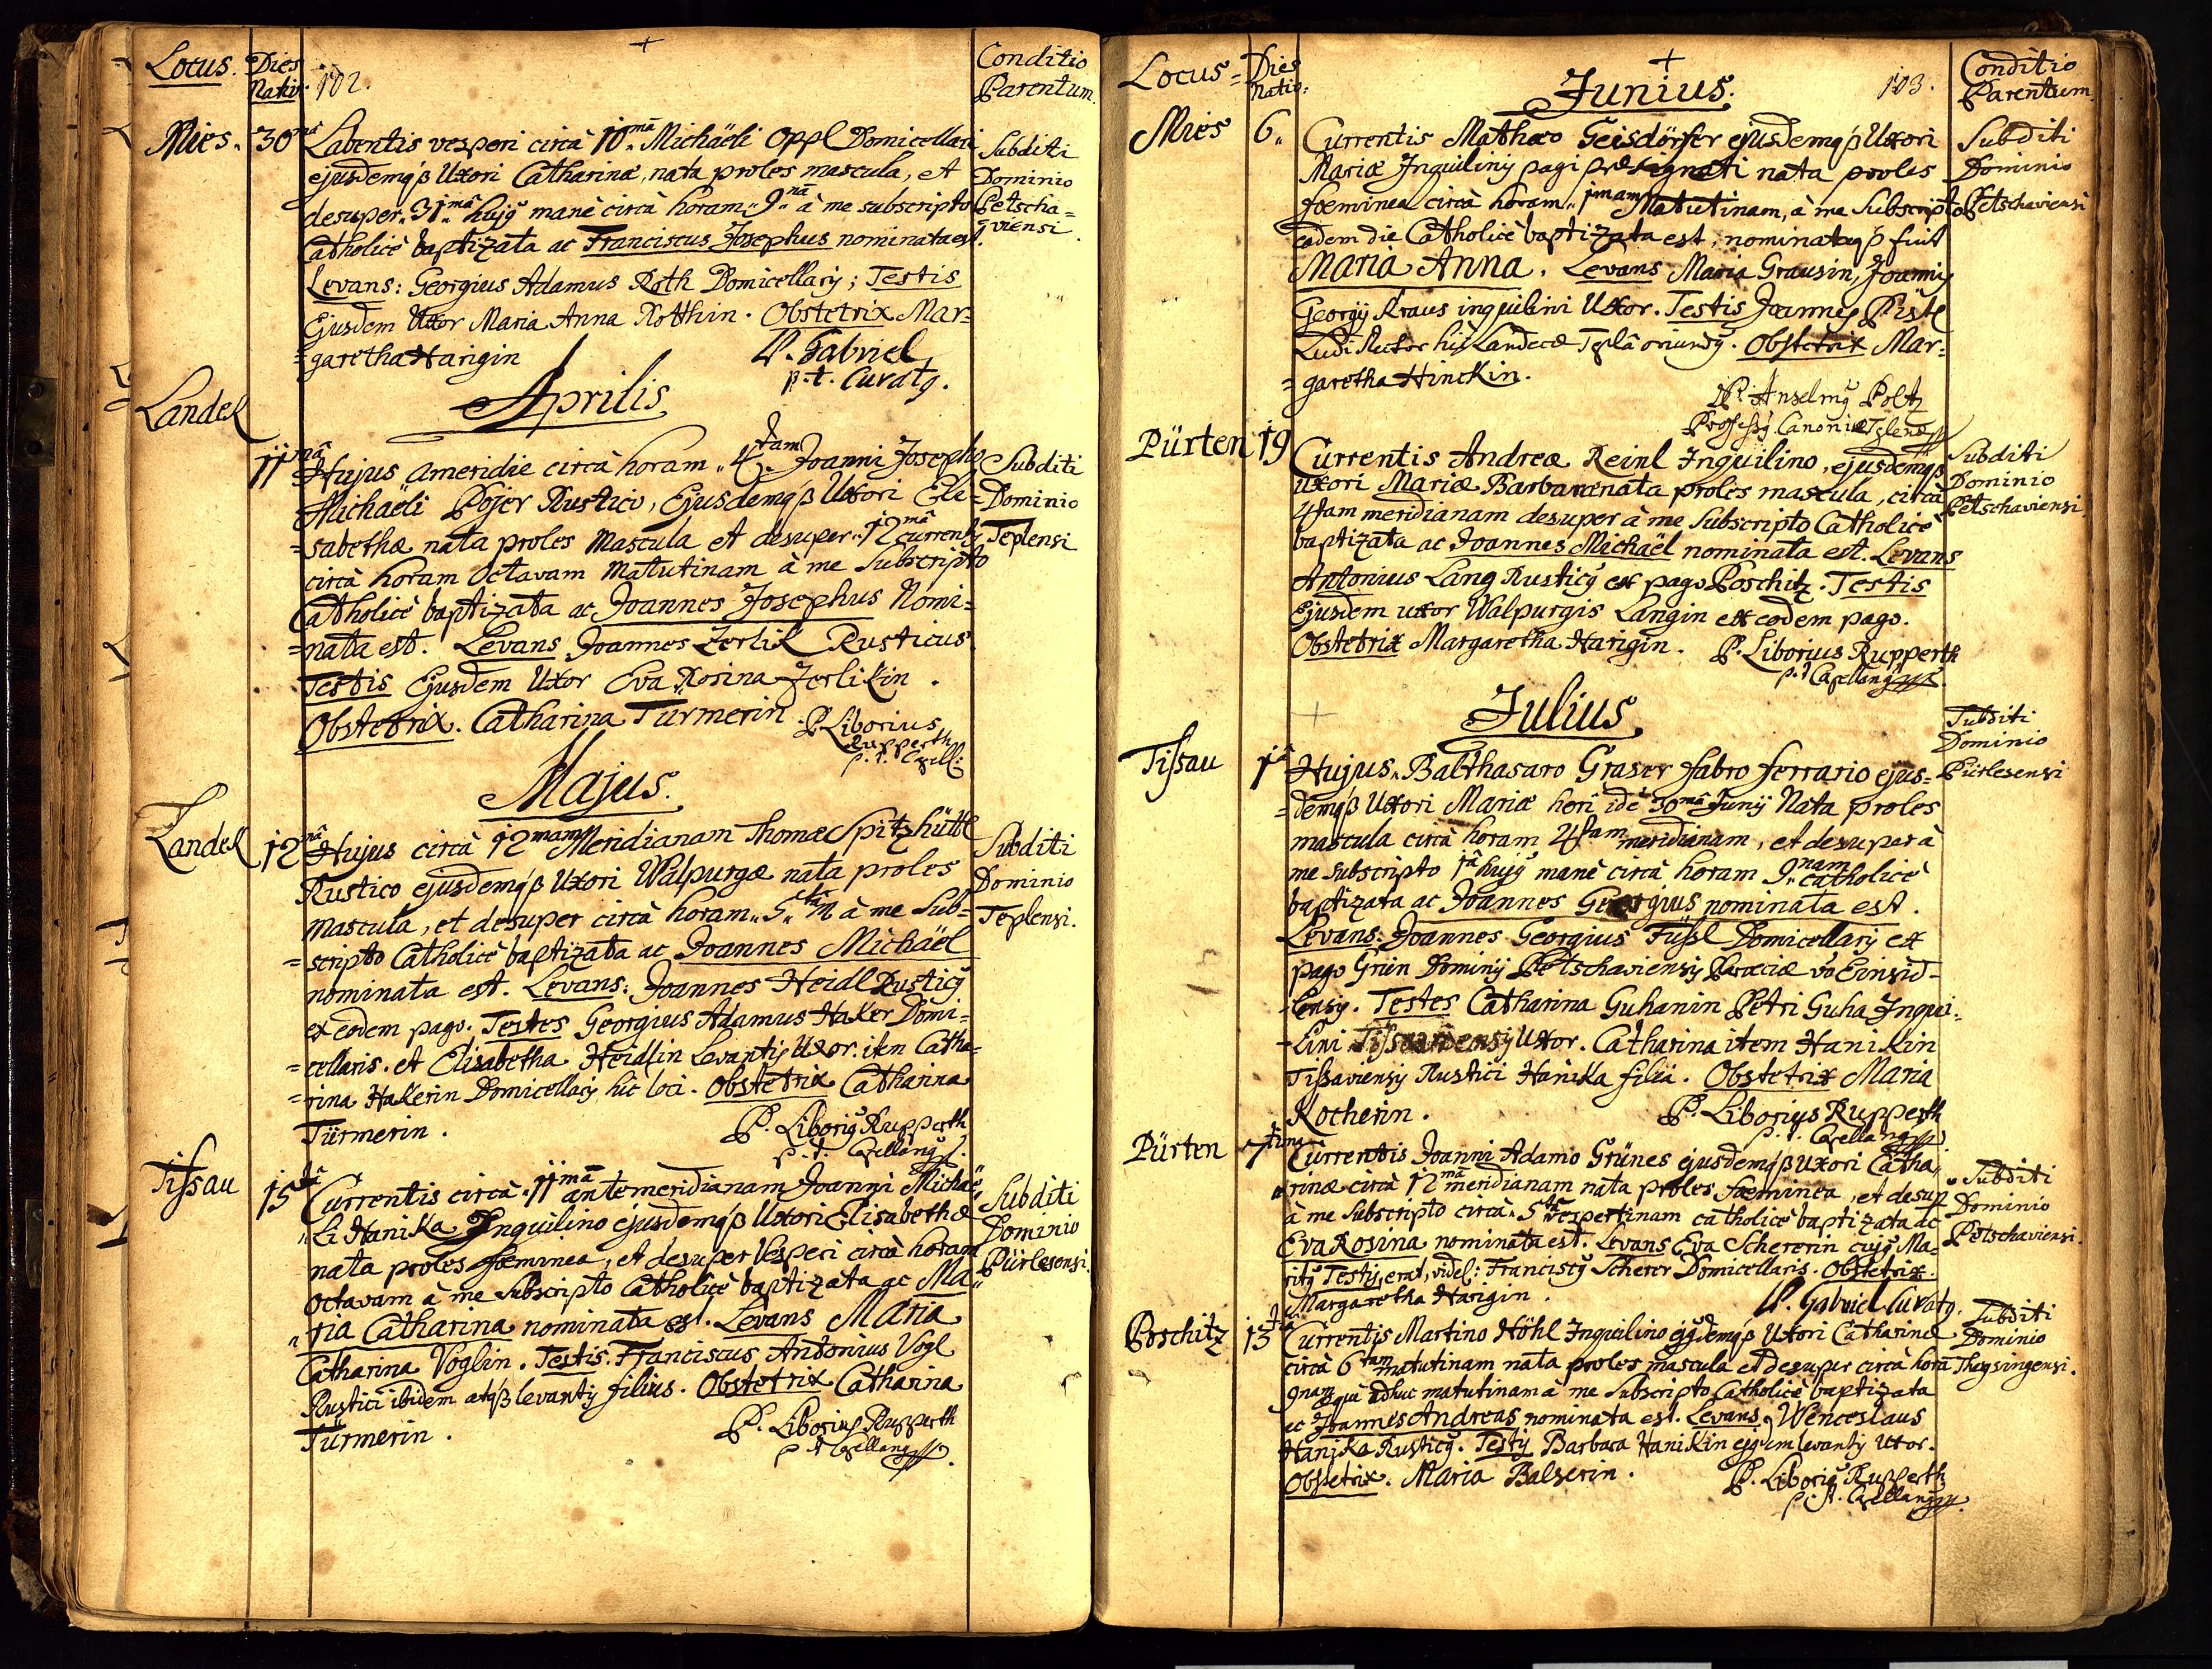 Locus. Dies Nativ: 102. Conditio Parentum.
Mies. 30mâ Labentis vesperi circà 10mâ Michäeli Oppl Domicellari
ejusdemqβ Uxori Catharinæ, nata proles mascula, et
desuper 31mâ hujq manè circà horam 9nâ à me subscripto
Catholicè baptizata ac Franciscus Josephus nominata est.
Levans: Georgius Adamus Roth Domicellarij; Testis
Ejusdem Uxor Maria Anna Rotthin. Obstetrix Mar=
=garetha Harigin
P. Gabriel
p.t. Curatq.
Subditi
Dominio
Petscha=
viensi
Aprilis
Landek
11mâ Hujus ameridie circà horam 4tam Joanni Josepho
Michäeli Pojer Rustico, Ejusdemqβ Uxori Eli=
=sabethæ nata proles mascula et desuper 12mâ currentis
circà horam Octavam matutinam à me Subscripto
Catholicè baptizata ac Joannes Josephus Nomi=
=nata est. Levans Joannes Zerlik Rusticus.
Testis Ejusdem Uxor Eva Rosina Zerlikin.
Obstetrix. Catharina Türmerin.
P. Liborius
Rupperth
p.t. Capell:
Subditi
Dominio
Teplensi
Majus.
Landek 12mâ Hujus circà 12mam Meridianam Thomæ Spitzhüttl
Rustico ejusdemqβ Uxori Walpurgæ nata proles
mascula, et desuper circà horam 5tâ à me Sub=
=scripto Catholicè baptizata ac Joannes Michäel
nominata est. Levans: Joannes Heidl Rusticq
ex eodem pago. Testes Georgius Adamus Haker Domi=
=cellaris. et Elisabetha Heidlin Levantis Uxor. item Catha=
=rina Hakerin Domicellarij hic loci. Obstetrix Catharina
Türmerin.
P. Liboriq Rupperth
p.t. Capellanq
Subditi
Dominio
Teplensi.
Tissau 15tâ Currentis circà 11mâ antemeridianam Joanni Michäe
li Hanika Inquilino ejusdemqβ Uxori Elisabethæ
nata proles fæminea, et desuper Vesperi circà horam
Octavam à me Subscripto Catholicè baptizata ac Ma=
ria Catharina nominata est. Levans Maria
Catharina Voglin. Testis. Franciscus Antonius Vogl
Rustici ibidem atqβ levantis filius. Obstetrix Catharina
Türmerin.
P. Liborius Rupperth
p.t. Capellanq
Subditi
Dominio
Pürlesensi.
Locus= Dies Nativ: 103. Conditio Parentum
Junius.
Mies 6. Currentis Mathæo Geisdörfer ejusdemqβ Uxori
Mariæ Inquilinis pagi præsignati nata proles
fœminea circà horam 1mam Matutinam, à me Subscripto
eodem die Catholicè baptizata est, nominataqβ fuit
Maria Anna. Levans Maria Grausin, Joannis
Georgij Kraus inquilini Uxor. Testis Joannes Pistl
Ludi Rector hic Landecæ Teplâ oriundq. Obstetrix Mar=
=garetha Hinckin.
P. Anselmq Poltz
Professq Canoniæ Teplenæ
Subditi
Dominio
Petschaviensi
Pürten 19 Currentis Andreæ Reinl Inquilino, ejusdemqβ
uxori Mariæ Barbaræ nata proles mascula, circà
4tam meridianam desuper à me Subscripto Catholicè
baptizata ac Joannes Michäel nominata est. Levans
Antonius Lang Rusticq ex pago Poschitz. Testis
Ejusdem uxor Walpurgis Langin ex eodem pago.
Obstetrix Margaretha Harigin.
P. Liborius Rupperth
p.t. Capellanq
Subditi
Dominio
Petschaviensi
Julius
Tissau 1â Hujus Balthasaro Graser fabro ferrario ejus=
=demqβ Uxori Mariæ heri idè 30mâ Junij Nata proles
mascula circà horam 4tam meridianam, et desuper à
me subscripto 1â hujq manè circà horam 9nam catholicè
baptizata ac Joannes Georgius nominata est.
Levans: Joannes Georgius Füssl Domicellarij ex
pago Grün Dominij Petschaviensis vo Einsid-
lensis. Testes Catharina Guhanin Petri Guha Inqui-
lini Tissaviensis Uxor. Catharina item Hanikin
Tissaviensis Rustici Hanika filia. Obstetrix Maria
Kocherin.
P. Liborius Rupperth
p.t. Capellanq
Subditi
Dominio
Pürlesensi
Pürten 7tima Currentis Joanni Adamo Grünes ejusdemqβ Uxori Catha
rinæ circà 12mâ meridianam nata proles fæminea, et desup
à me Subscripto circà 5tâ vespertinam catholicè baptizata ac
Eva Rosina nominata est. Levans Eva Schererin cujq Ma=
ritq Testis, erat, videl: Franciscq Scherer Domicellaris. Obstetrix.
Margaretha Harigin.
P. Gabriel Curatq.
Subditi
Dominio
Petschaviensi.
Poschitz 13tiâ Currentis Martino Höhl Inquilino ejqdemqβ Uxori Catharinæ
circà 6tam matutinam nata proles mascula et desuper circà horâ
9nam adhuc matutinam à me Subscripto Catholicè baptizata
ac Joannes Andreas nominata est. Levans Wenceslaus
Hanika Rusticq. Testis Barbara Hanikin ejqdem levantis Uxor.
Obstetrix. Maria Balserin.
P. Liboriq Rupperth
p.t. Capellanq
Subditi
Dominio
Theysingensi.